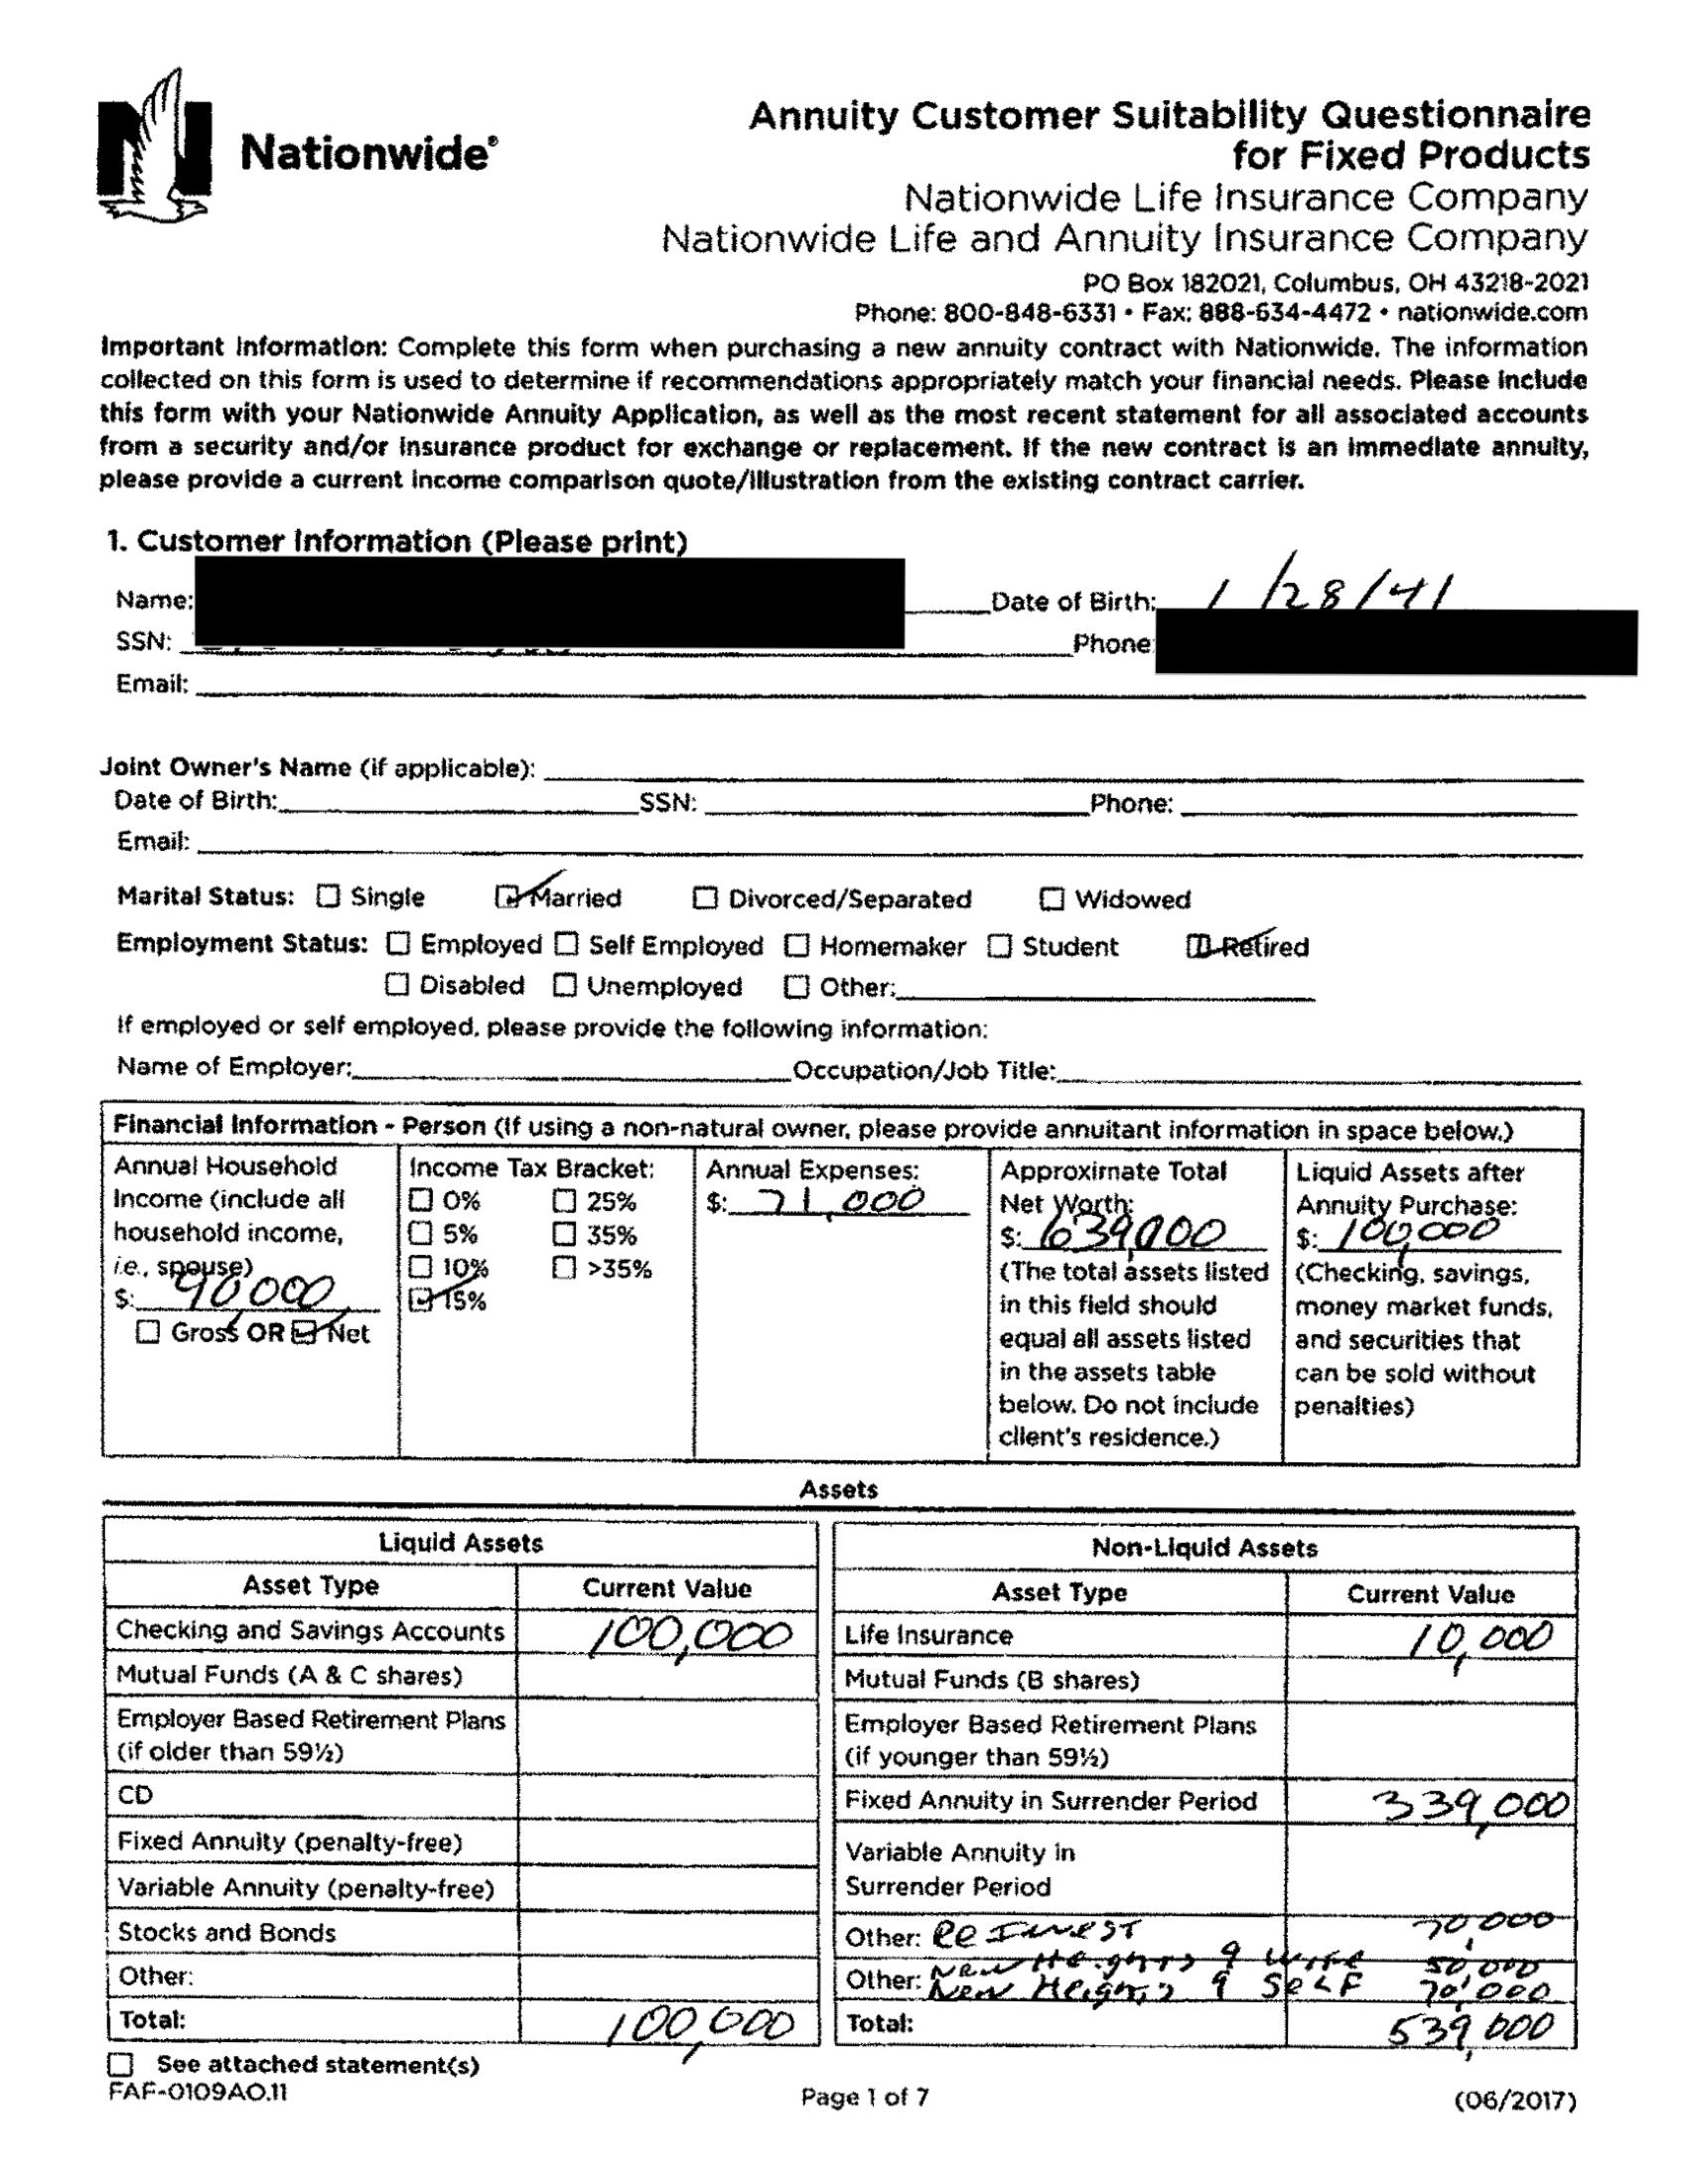 Nationwide®
Annuity Customer Suitability Questionnaire
for Fixed Products
Nationwide Life Insurance Company
Nationwide Life and Annuity Insurance Company
PO Box 182021, Columbus, OH 43218-2021
Phone: 800-848-6331 • Fax: 888-634-4472 • nationwide.com
Important Information: Complete this form when purchasing a new annuity contract with Nationwide. The information
collected on this form is used to determine if recommendations appropriately match your financial needs. Please include
this form with your Nationwide Annuity Application, as well as the most recent statement for all associated accounts
from a security and/or insurance product for exchange or replacement. If the new contract is an immediate annuity,
please provide a current income comparison quote/illustration from the existing contract carrier.
1. Customer Information (Please print)
Name: Date of Birth: 1/28/41
SSN: Phone
Email:
Joint Owner's Name (if applicable):
Date of Birth: SSN: Phone:
Email:
Marital Status: Single Married Divorced/Separated Widowed
Employment Status: Employed Self Employed Homemaker Student Retired
Disabled Unemployed Other:
If employed or self employed, please provide the following information:
Name of Employer: Occupation/Job Title:
Financial Information - Person (If using a non-natural owner, please provide annuitant information in space below.)
Annual Household
Income (include all
household income,
i.e., spouse)
$: 90,000
Gross OR Net
Income Tax Bracket:
0% 25%
5% 35%
10% >35%
15%
Annual Expenses:
$: 71,000
Approximate Total
Net Worth:
$: 639,000
(The total assets listed
in this field should
equal all assets listed
in the assets table
below. Do not include
client's residence.)
Liquid Assets after
Annuity Purchase:
$: 100,000
(Checking, savings,
money market funds,
and securities that
can be sold without
penalties)
Assets
Liquid Assets
Asset Type Current Value
Checking and Savings Accounts 100,000
Mutual Funds (A & C shares)
Employer Based Retirement Plans
(if older than 59½)
CD
Fixed Annuity (penalty-free)
Variable Annuity (penalty-free)
Stocks and Bonds
Other:
Total: 100,000
Non-Liquid Assets
Asset Type Current Value
Life Insurance 10,000
Mutual Funds (B shares)
Employer Based Retirement Plans
(if younger than 59½)
Fixed Annuity in Surrender Period 339,000
Variable Annuity in
Surrender Period
Other: Re Invest 70,000
New Heights 9 wife 50,000
Other: New Heights 9 Self 70,000
Total: 539,000
See attached statement(s)
FAF-0109AO.11
Page 1 of 7
(06/2017)